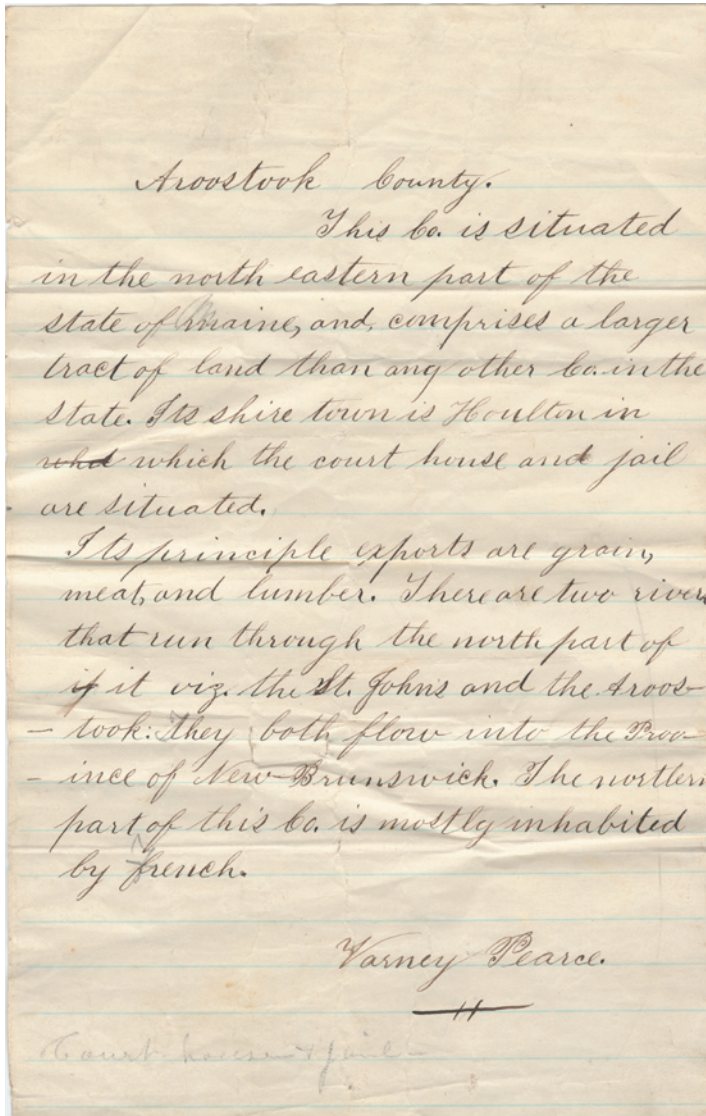 Aroostook County.
This Co. is situated
in the north eastern part of the
state of Maine, and, comprises a larger
tract of land than any other Co. in the
state. Its shire town is Houlton in
whd which the court house and jail
are situated.
Its principle exports are grain,
meat, and lumber. There are two rivers
that run through the north part of
if it viz. the St. Johns and the Aroos-
- took: They both flow into the Prov-
- ince of New-Brunswick. The northern
part of this Co. is mostly inhabited
by French.
Varney Pearce.
Court house & jail -